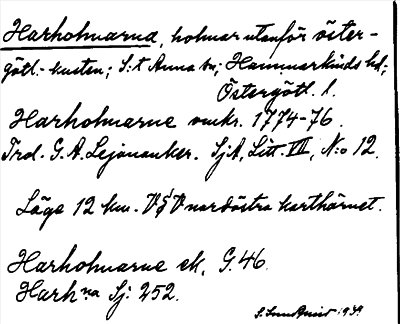 Harholmarna, holmar utanför öster-
götl.-kusten; S:t Anna sn; Hammarkinds hd;
Östergötl. l.
Harholmarne omkr. 1774-76.
Trol. G.A. Lejonanker. SjA, Litt. VII, N:o 12.
Läge 12 km. V§V nordöstra karthörnet.
Harholmarne ek, G. 46.
Harhna Sj: 252.
1939